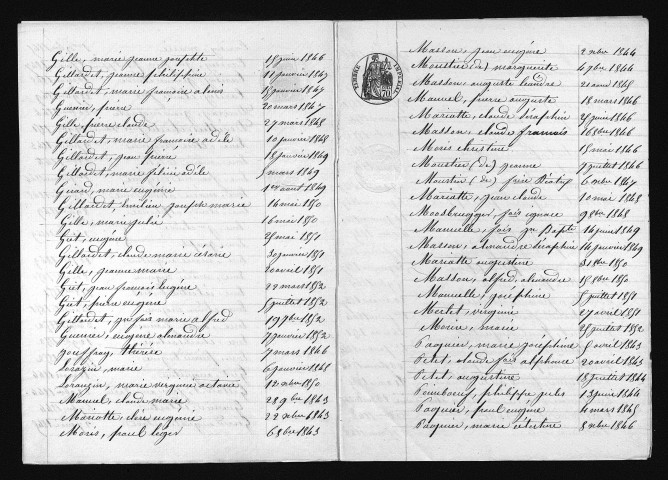 Gille, marie jeanne josephte 15 juin 1846
Gillardet, jeanne philippine 11 janvier 1847
Gillardet, marie françoise 15 janvier 1847
Guenier, pierre 20 mars 1847
Gille, pierre claude 27 mars 1848
Gillardet, marie françoise adèle 10 janvier 1848
Gillardet, jean pierre 18 janvier 1849
Gillardet, marie adèle 5 mars 1849
marie eugénie 1er août 1849
Gillardet, joseph marie 16 mai 1850
Gille, marie julie 16 mai 1850
Guet, eugène 25 mai 1851
Gillardet, claude marie césarie 30 janvier 1851
Gille, jeanne marie 20 avril 1851
Guet, jean françois eugène 22 mars 1852
Guet, pierre eugène 5 juillet 1852
Gillardet, jn fois marie alfred 19 9bre 1852
Guenier, eugène alexandre 7 janvier 1852
Jouffroy, thérèse 7 mars 1846
marie 6 janvier 1848
marie virginie octavie 12 octobre 1850
Manuel, claude marie 28 9bre 1843
Mariotte, claire eugénie 22 xbre 1843
Moris, paul léger 6 8bre 1843
TIMBRE IMPERIAL
Masson, jean eugène 2 xbre 1844
Moustier (de) marguerite 4 7bre 1844
Masson, auguste léandre 21 août 1845
Manuel, pierre auguste 18 mars 1846
Mariotte, claude séraphin 25 juin 1846
Masson, claude francois 16 8bre 1846
Moris christine 15 mai 1846
Moustier (de) jeanne 7 juillet 1846
Moustier (de) 6 xbre 1847
Mariotte, jean claude 10 mai 1848
Moosbrugger, fois ignace 9 8bre 1848
Manuelle, fois jn Bapte 16 juin 1849
Masson, alexandre séraphin 16 janvier 1849
Mariotte augustine 31 8bre 1850
Masson, alfred, alexandre 15 8bre 1850
Manuelle, joséphine 5 juillet 1851
Mertet virginie 27 avril 1851
marie 25 juillet 1852
Paquier, marie joséphine 6 avril 1843
Petet, claude fois alphonse 20 avril 1843
Petet, augustine 18 juillet 1844
philippe jules 13 juin 1844
Paquier, paul eugène 4 mars 1845
Paquier, marie 8 xbre 1846